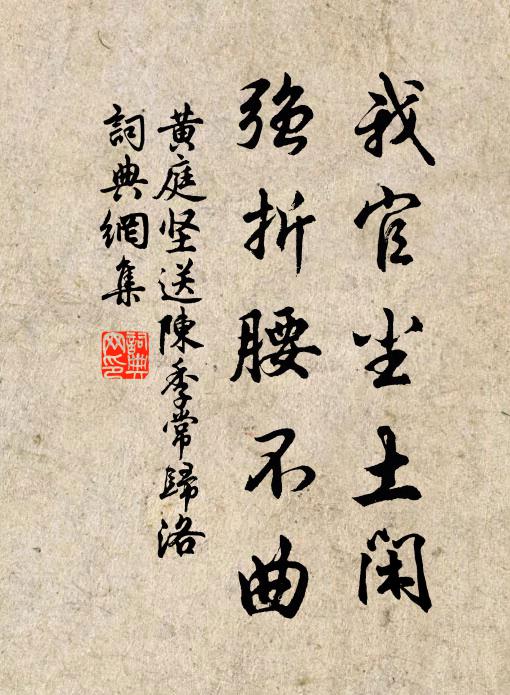 我官尘土闲
強折腰不曲
黄庭坚送陳季常歸洛
詞典網集
詞典
网印